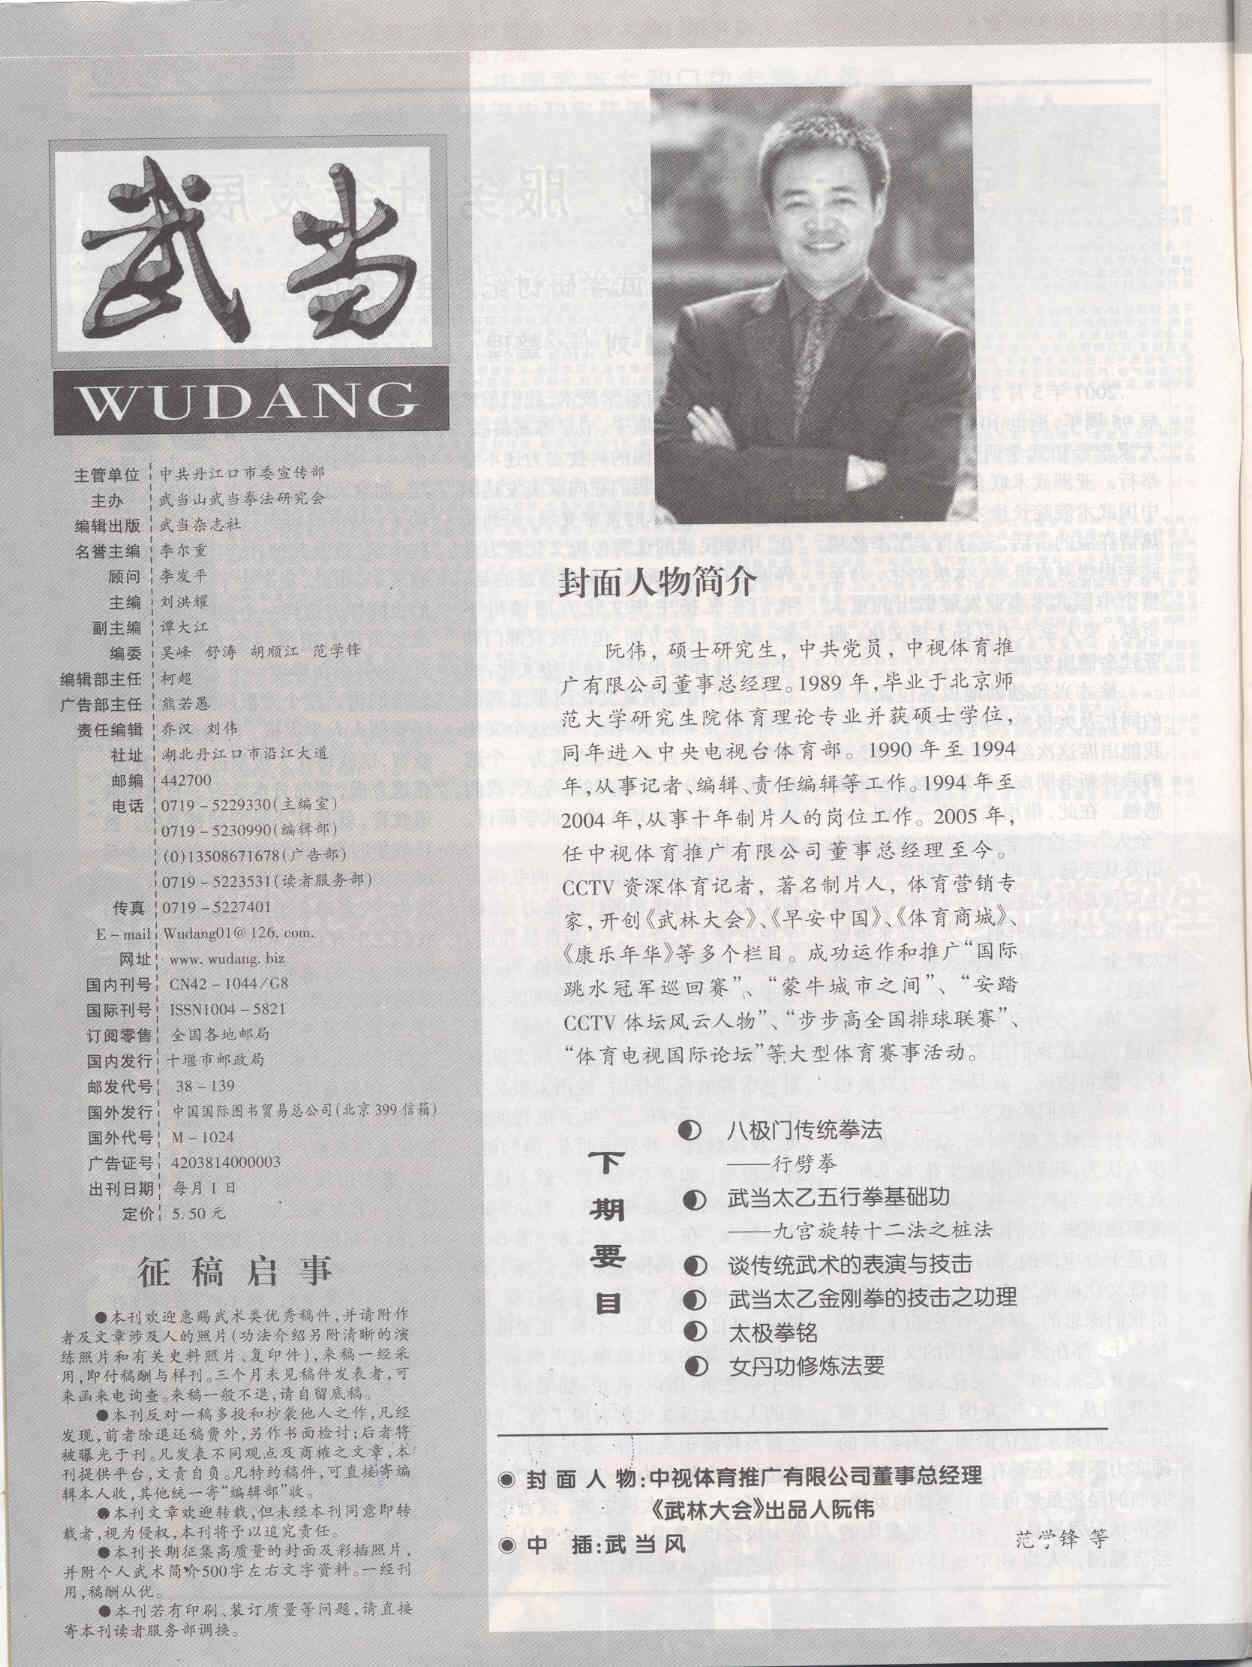 武当
WUDANG
主管单位 中共丹江口市委宣传部
主办 武当山武当拳法研究会
编辑出版 武当杂志社
名誉主编 李尔重
顾问 李发平
主编 刘洪耀
副主编 谭大江
编委 吴峰 舒涛 胡顺江 范学锋
编辑部主任 柯超
广告部主任 熊若愚
责任编辑 乔汉 刘伟
社址 湖北丹江口市沿江大道
邮编 442700
电话 0719-5229330(主编室)
0719-5230990(编辑部)
(0)13508671678(广告部)
0719-5223531(读者服务部)
传真 0719-5227401
E-mail Wudang01@126.com.
网址 www.wudang.biz
国内刊号 CN42-1044/G8
国际刊号 ISSN1004-5821
订阅零售 全国各地邮局
国内发行 十堰市邮政局
邮发代号 38-139
国外发行 中国国际图书贸易总公司(北京399信箱)
国外代号 M-1024
广告证号 4203814000003
出刊日期 每月1日
定价 5.50元
征稿启事
●本刊欢迎惠赐武术类优秀稿件,并请附作
者及文章涉及人的照片(功法介绍另附清晰的演
练照片和有关史料照片、复印件),来稿一经采
用,即付稿酬与样刊。三个月未见稿件发表者,可
来函来电询查。来稿一般不退,请自留底稿。
●本刊反对一稿多投和抄袭他人之作,凡经
发现,前者除退还稿费外,另作书面检讨;后者将
被曝光于刊。凡发表不同观点及商榷之文章,本
刊提供平台,文责自负。凡特约稿件,可直接寄编
辑本人收,其他统一寄“编辑部”收。
●本刊文章欢迎转载,但未经本刊同意即转
载者,视为侵权,本刊将予以追究责任。
●本刊长期征集高质量的封面及彩插照片,
并附个人武术简介500字左右文字资料。一经刊
用,稿酬从优。
●本刊若有印刷、装订质量等问题,请直接
寄本刊读者服务部调换。
封面人物简介
阮伟,硕士研究生,中共党员,中视体育推
广有限公司董事总经理。1989年,毕业于北京师
范大学研究生院体育理论专业并获硕士学位,
同年进入中央电视台体育部。1990年至1994
年,从事记者、编辑、责任编辑等工作。1994年至
2004年,从事十年制片人的岗位工作。2005年,
任中视体育推广有限公司董事总经理至今。
CCTV资深体育记者,著名制片人,体育营销专
家,开创《武林大会》、《早安中国》、《体育商城》、
《康乐年华》等多个栏目。成功运作和推广“国际
跳水冠军巡回赛”、“蒙牛城市之间”、“安踏
CCTV体坛风云人物”、“步步高全国排球联赛”、
“体育电视国际论坛”等大型体育赛事活动。
下期要目
八极门传统拳法
——行劈拳
武当太乙五行拳基础功
——九宫旋转十二法之桩法
谈传统武术的表演与技击
武当太乙金刚拳的技击之功理
太极拳铭
女丹功修炼法要
◉封面人物:中视体育推广有限公司董事总经理
《武林大会》出品人阮伟
◉中 插:武当风 范学锋 等